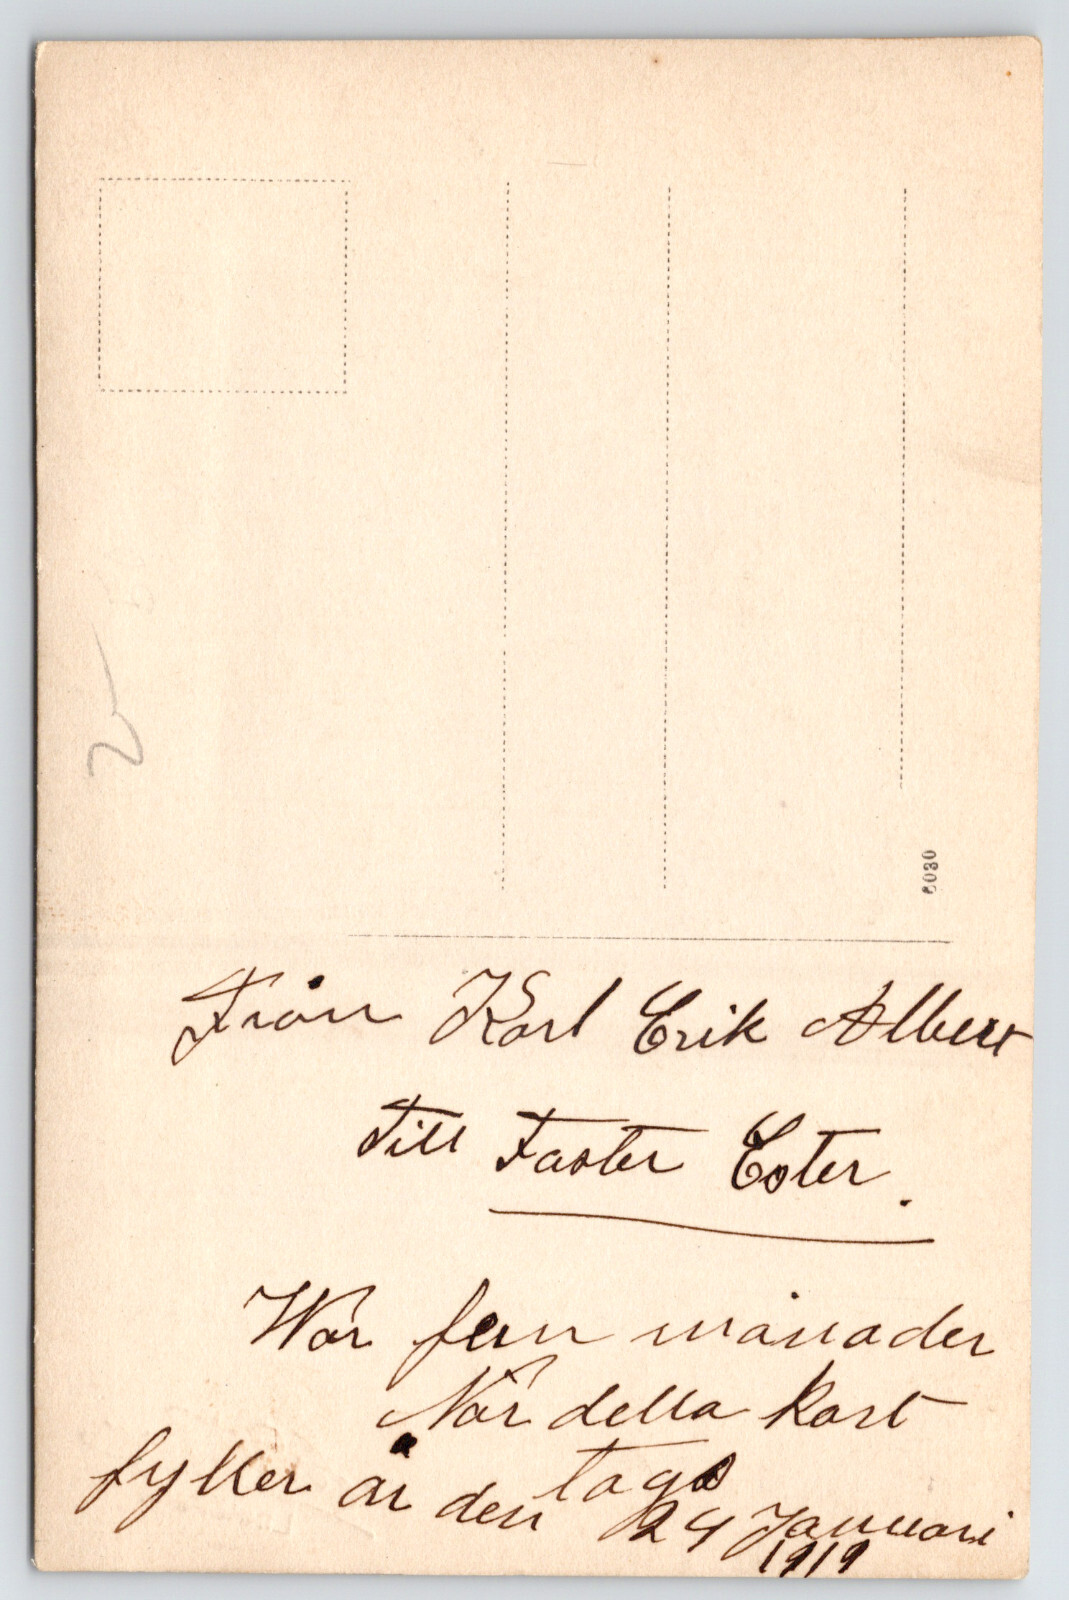 6030
Från Karl Erik Albert
Till Faster Ester.
War fem månader
När detta kort
tags
fyller år den 24 Januari
1919